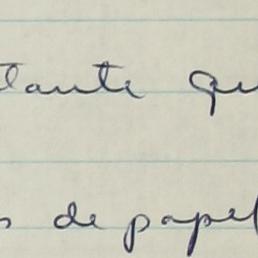 tante qu
s de papel